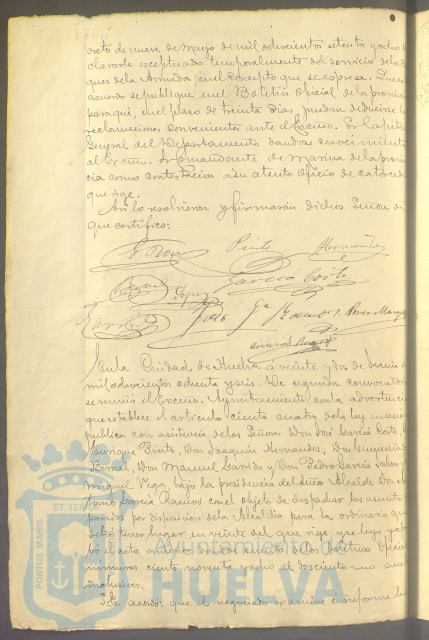 creto de nueve de Mayo de mil ochocientos setenta y ocho de
clararle exceptuado temporalmente del servicio de los bu
ques de la Armada en el concepto que se expresa. Que este
acuerdo se publique en el Boletin Oficial de la provincia
para que, en el plazo de treinta dias, puedan deducirse las
reclamaciones convenientes ante el Excmo. Sr. Capitan
General del Departamento dandose conocimiento
al Excmo. Sr. Comandante de Marina de la provin
cia como contestacion a su atento oficio de catorce del
que rige.
Asi lo resolvieron y firmarán dichos Señores de
que certifico:
Pinto Hernandez
Garcia Cortes
Lopez
Garrido Jose Ga Ramos Perez
En la Ciudad de Huelva á veinte y dos de Junio de
mil ochocientos ochenta y seis. De segunda convocatoria
se reunió el Excmo. Ayuntamiento con la advertencia
que establece el articulo ciento cuatro de la ley
publica con asistencia de los Señores Don José Garcia Cortes,
Enrique Pinto, Don Joaquin Hernandez, Don Eugenio
Bernal, Don Manuel Garrido y Don Pedro Garcia
Miguel Vega, bajo la presidencia del Señor Alcalde Don
Garcia Ramos con el objeto de despachar los asuntos
por disposicion de la Alcaldia para la ordinaria que
debió tener lugar en veinte del que rige y se leyó y apro
bó el acta anterior dandose cuenta de los Boletines Oficiales
numeros ciento noventa y ocho al doscientos uno am
inclusives.
S. E. acordó que el negociado examine e informe las
PORTUS MARIS ET TERRAE
Ayuntamiento de
HUELVA